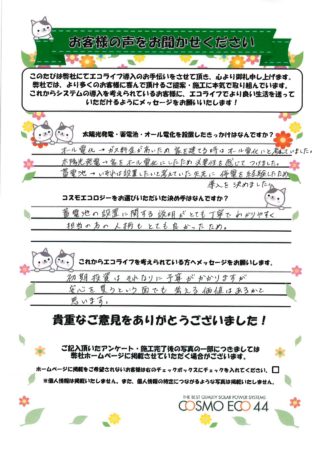 お客様の声をお聞かせください
このたびは弊社にてエコライフ導入のお手伝いをさせて頂き、心より御礼申し上げます。
弊社では、より多くのお客様に喜んで頂けるご提案・施工に本気で取り組んでいます。
これからシステムの導入を考えられているお客様に、エコライフでより良い生活を送って
いただけるようにメッセージをお願いいたします！
太陽光発電・蓄電池・オール電化を設置したきっかけはなんですか？
オール電化→ガス料金が高いため家を建てる時はオール電化にと考えていました。
太陽光発電→家をオール電化にしたため必要性を感じてつけました。
蓄電池→いずれは設置したいと考えていた矢先に停電を経験したため
導入を決めました
コスモエコロジーをお選びいただいた決め手はなんですか？
蓄電池の設置に関する説明がとても丁寧でわかりやすく
担当の方の人柄もとても良かったため。
これからエコライフを考えられている方へメッセージをお願いします。
初期投資はそれなりに予算がかかりますが
安心を買うという面でも考える価値はあるかと
思います。
貴重なご意見をありがとうございました！
ご記入頂いたアンケート・施工完了後の写真の一部につきましては
弊社ホームページに掲載させていただく場合がございます。
ホームページに掲載をご希望されないお客様は右のチェックボックスにチェックを入れてください。
※個人情報は掲載いたしません。また、個人情報の特定につながるような写真は掲載いたしません。
THE BEST QUALITY SOLAR POWER SYSTEMS
COSMO ECO 44